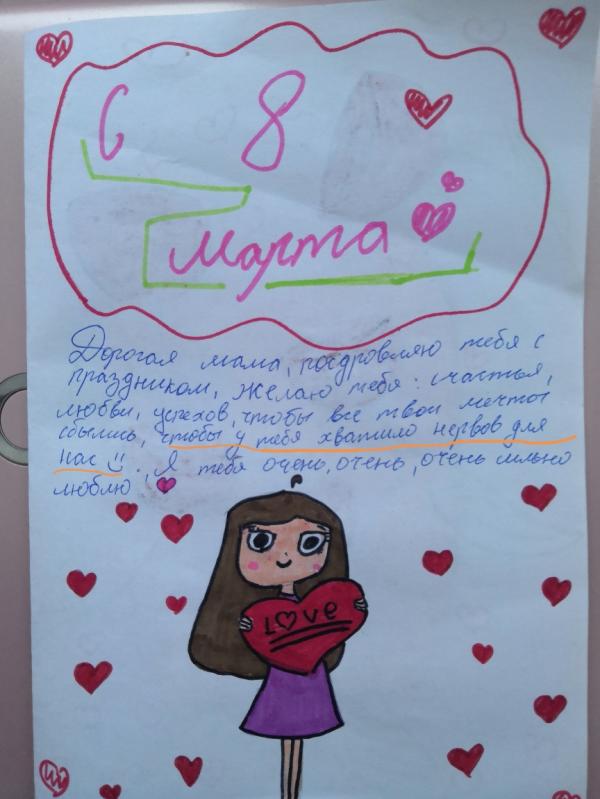 С 8
Марта
Дорогая мама, поздровляю тебя с
праздником, желаю тебе: счастья,
любви, успехов, чтобы все твои мечты
сбылись, чтобы у тебя хватило нервов для
нас. Я тебя очень, очень, очень сильно
люблю
LOVE